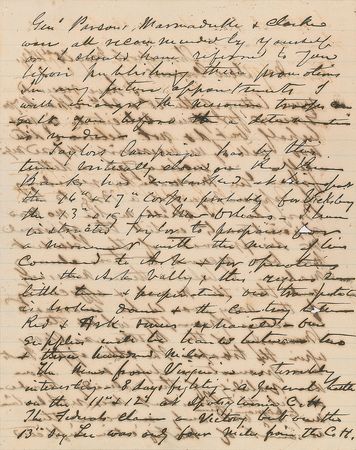 Genl Parsons, Marmaduke & Clark
were all recommended by yourself
or I should have referred to you
before publishing their promotions
In any future appointments I
will the Missouri troops
before a
is made.
Taylor's Campaign has by this
time virtually closed on Red River
Banks has
the 16" & 17" Corps probably for Vicksburg
the 13" & 19" for New Orleans. I have
instructed Taylor to prepare for
a movement with the main of his
command to Ark & for operations
in the Ark Valley. This requires
little time & preparation,
is broken down & the country between
Red & Ark rivers exhausted - our
supplies will be between two
& three hundred miles.
The News from Virginia is terribly
interesting - 8 days fighting. A general battle
on the 11" & 12" at Spotsylvania C.H.
The Federals claim a victory but on the
13" Day Lee was only four miles from the C.H.